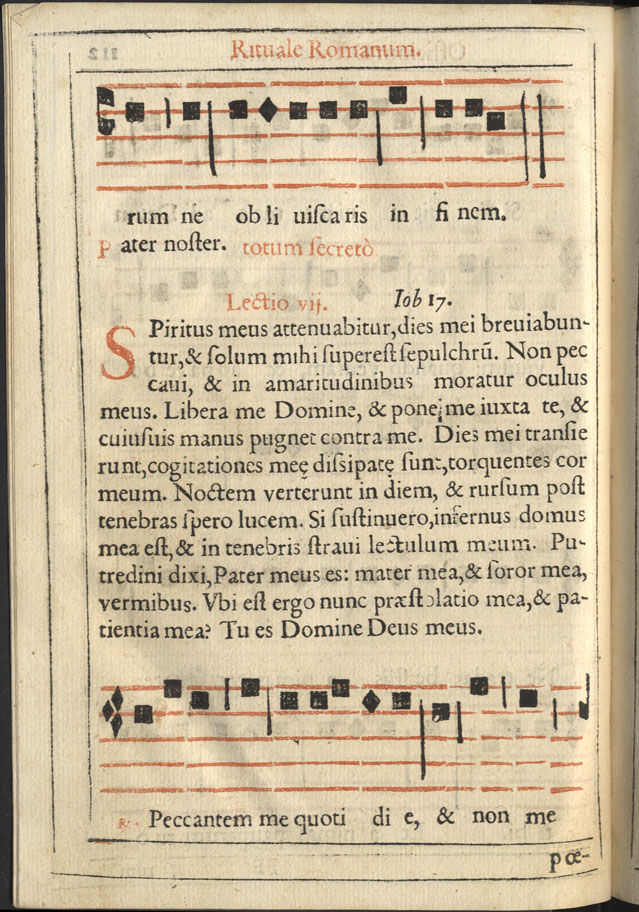 Rituale Romanum.
rum ne ob li uiſca ris in fi nem.
Pater noſter. totum ſecretò.
Lectio vij. Iob 17.
SPiritus meus attenuabitur,dies mei breuiabun-
tur,& ſolum mihi ſupereſt ſepulchrũ. Non pec
caui, & in amaritudinibus moratur oculus
meus. Libera me Domine, & pone me iuxta te, &
cuiuſuis manus pugnet contra me. Dies mei tranſie
runt,cogitationes meę diſsipatę ſunt,torquentes cor
meum. Noctem verterunt in diem, & rurſum poſt
tenebras ſpero lucem. Si ſuſtinuero,infernus domus
mea eſt,& in tenebris ſtraui lectulum meum. Pu-
tredini dixi,Pater meus es: mater mea,& ſoror mea,
vermibus. Vbi eſt ergo nunc præſtolatio mea,& pa-
tientia mea? Tu es Domine Deus meus.
℟. Peccantem me quoti di e, & non me
pœ-